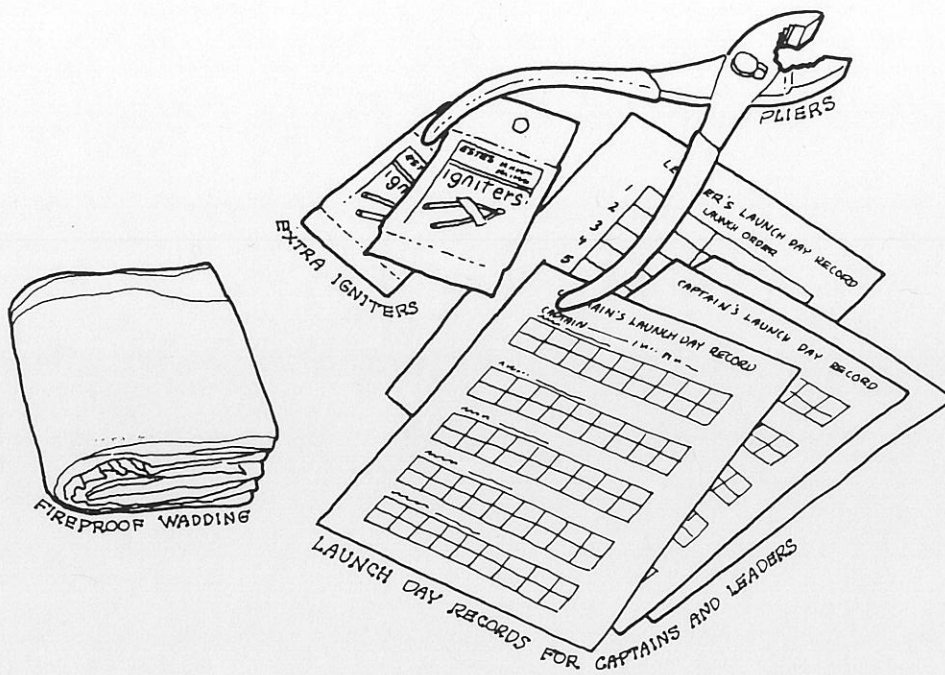 PLIERS
ESTES
igniters
igniters
EXTRA IGNITERS
LEADER'S LAUNCH DAY RECORD
LAUNCH ORDER
1
2
3
4
5
CAPTAIN'S LAUNCH DAY RECORD
CAPTAIN'S LAUNCH DAY RECORD
CAPTAIN
FIREPROOF WADDING
LAUNCH DAY RECORDS FOR CAPTAINS AND LEADERS